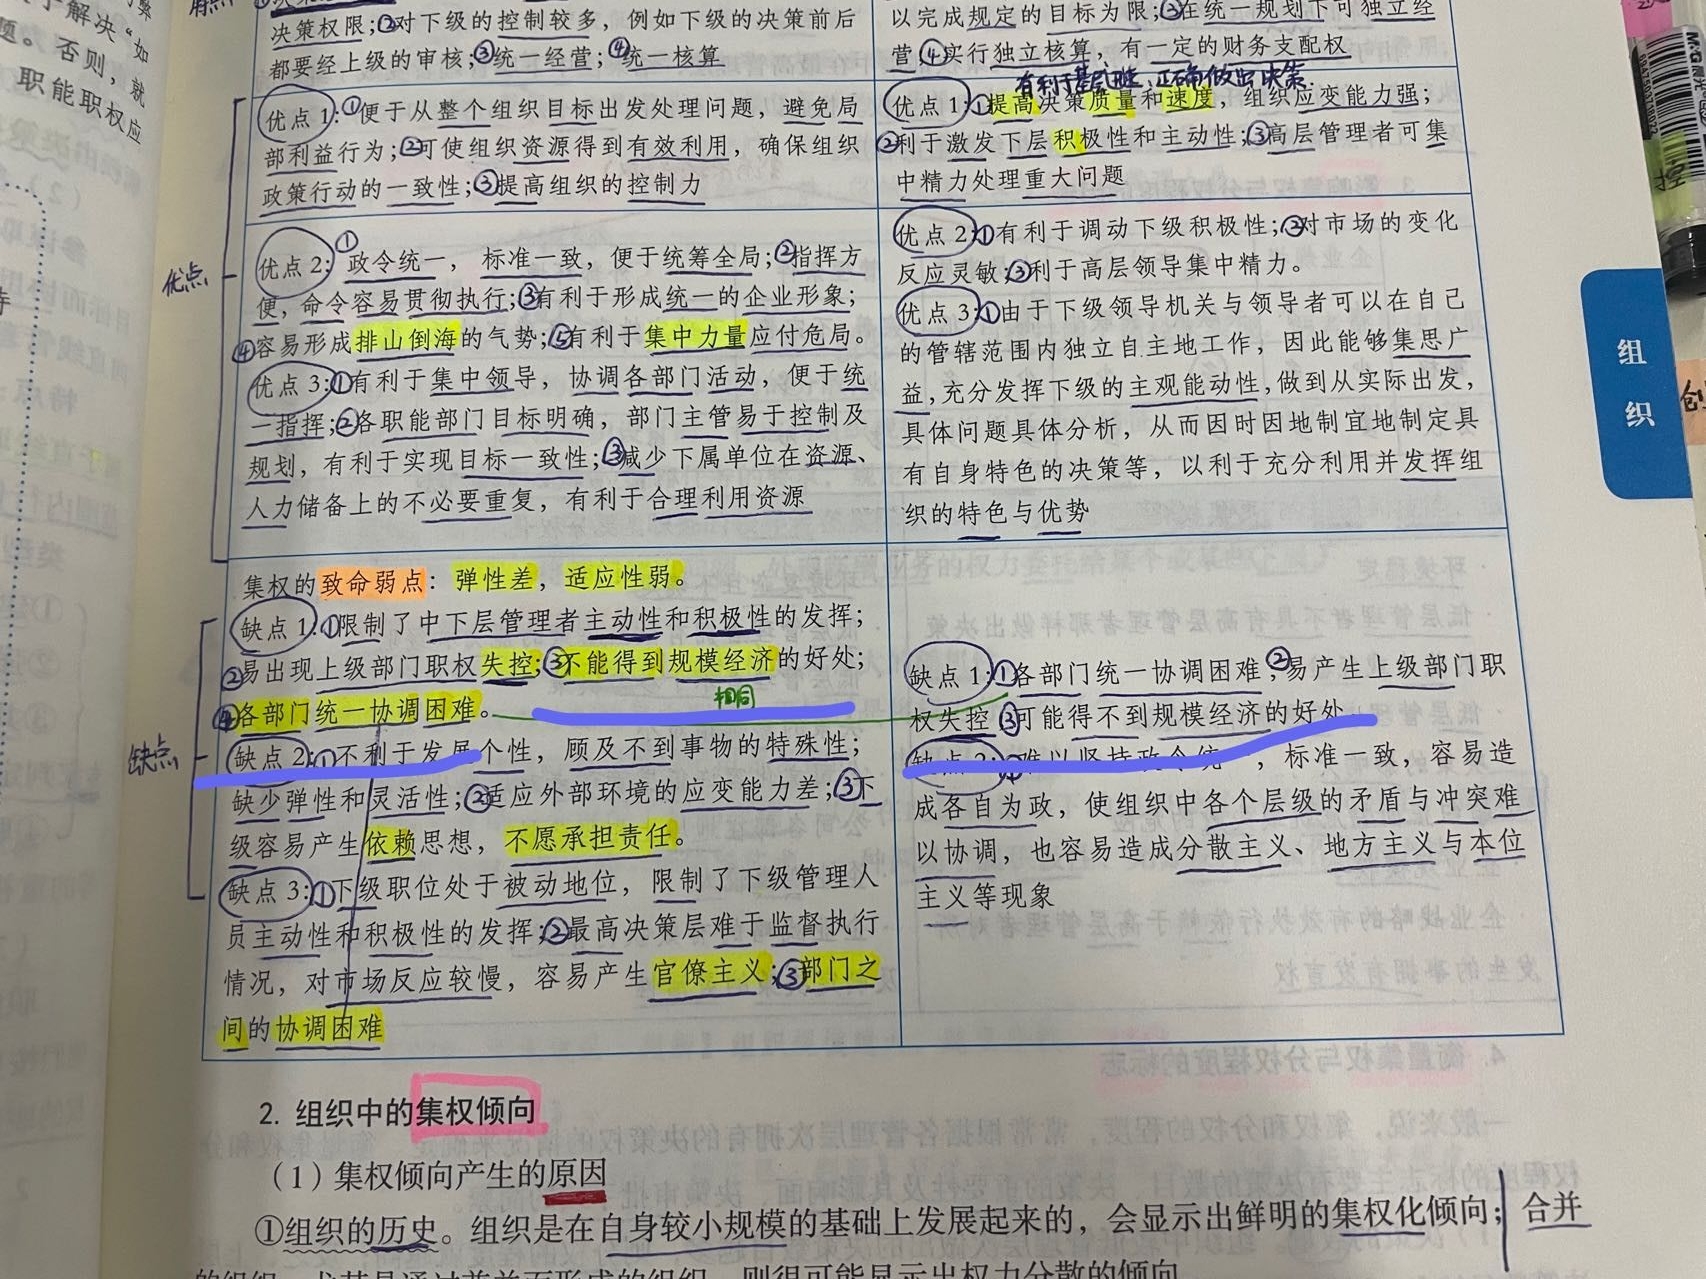 决策权限;②对下级的控制较多，例如下级的决策前后
都要经上级的审核;③统一经营;④统一核算
优点1:①便于从整个组织目标出发处理问题，避免局
部利益行为;②可使组织资源得到有效利用，确保组织
政策行动的一致性;③提高组织的控制力
优点2:①政令统一，标准一致，便于统筹全局;②指挥方
便，命令容易贯彻执行;③有利于形成统一的企业形象;
④容易形成排山倒海的气势;⑤有利于集中力量应付危局。
优点3:①有利于集中领导，协调各部门活动，便于统
一指挥;②各职能部门目标明确，部门主管易于控制及
规划，有利于实现目标一致性;③减少下属单位在资源、
人力储备上的不必要重复，有利于合理利用资源
优点
集权的致命弱点：弹性差，适应性弱。
缺点1:①限制了中下层管理者主动性和积极性的发挥;
②易出现上级部门职权失控;③不能得到规模经济的好处;
④各部门统一协调困难。
相同
缺点2:①不利于发展个性，顾及不到事物的特殊性;
缺少弹性和灵活性;②适应外部环境的应变能力差;③下
级容易产生依赖思想，不愿承担责任。
缺点3:①下级职位处于被动地位，限制了下级管理人
员主动性和积极性的发挥;②最高决策层难于监督执行
情况，对市场反应较慢，容易产生官僚主义;③部门之
间的协调困难
缺点
以完成规定的目标为限;③在统一规划下可独立经
营;④实行独立核算，有一定的财务支配权
优点1:①提高决策质量和速度，组织应变能力强;
②利于激发下层积极性和主动性;③高层管理者可集
中精力处理重大问题
优点2:①有利于调动下级积极性;②对市场的变化
反应灵敏;③利于高层领导集中精力。
优点3:①由于下级领导机关与领导者可以在自己
的管辖范围内独立自主地工作，因此能够集思广
益,充分发挥下级的主观能动性,做到从实际出发,
具体问题具体分析，从而因时因地制宜地制定具
有自身特色的决策等，以利于充分利用并发挥组
织的特色与优势
缺点1:①各部门统一协调困难;②易产生上级部门职
权失控;③可能得不到规模经济的好处
缺点2:①难以坚持政令统一，标准一致，容易造
成各自为政，使组织中各个层级的矛盾与冲突难
以协调，也容易造成分散主义、地方主义与本位
主义等现象
2. 组织中的集权倾向
（1）集权倾向产生的原因
①组织的历史。组织是在自身较小规模的基础上发展起来的，会显示出鲜明的集权化倾向；合并
组
织
控
创